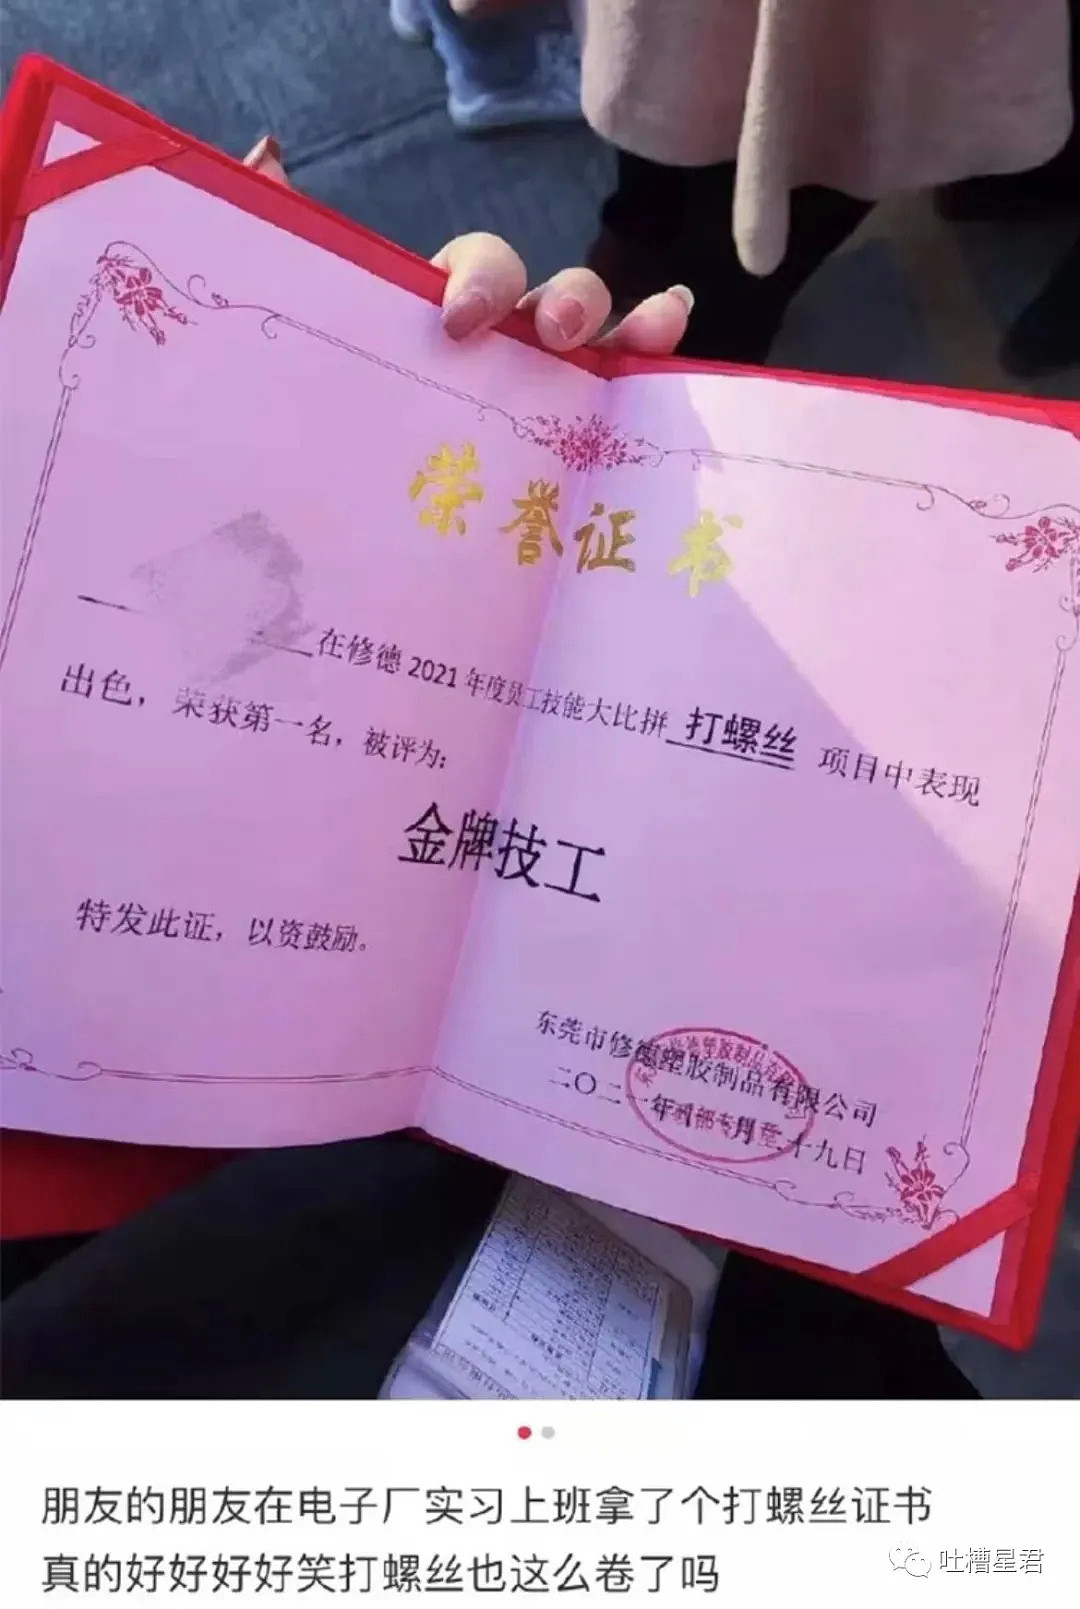 荣誉证书
在修德2021年度员工技能大比拼 打螺丝 项目中表现
出色，荣获第一名，被评为：
金牌技工
特发此证，以资鼓励。
东莞市修德塑胶制品有限公司
二〇二一年 月 十九日
朋友的朋友在电子厂实习上班拿了个打螺丝证书
真的好好好好笑打螺丝也这么卷了吗
吐槽星君